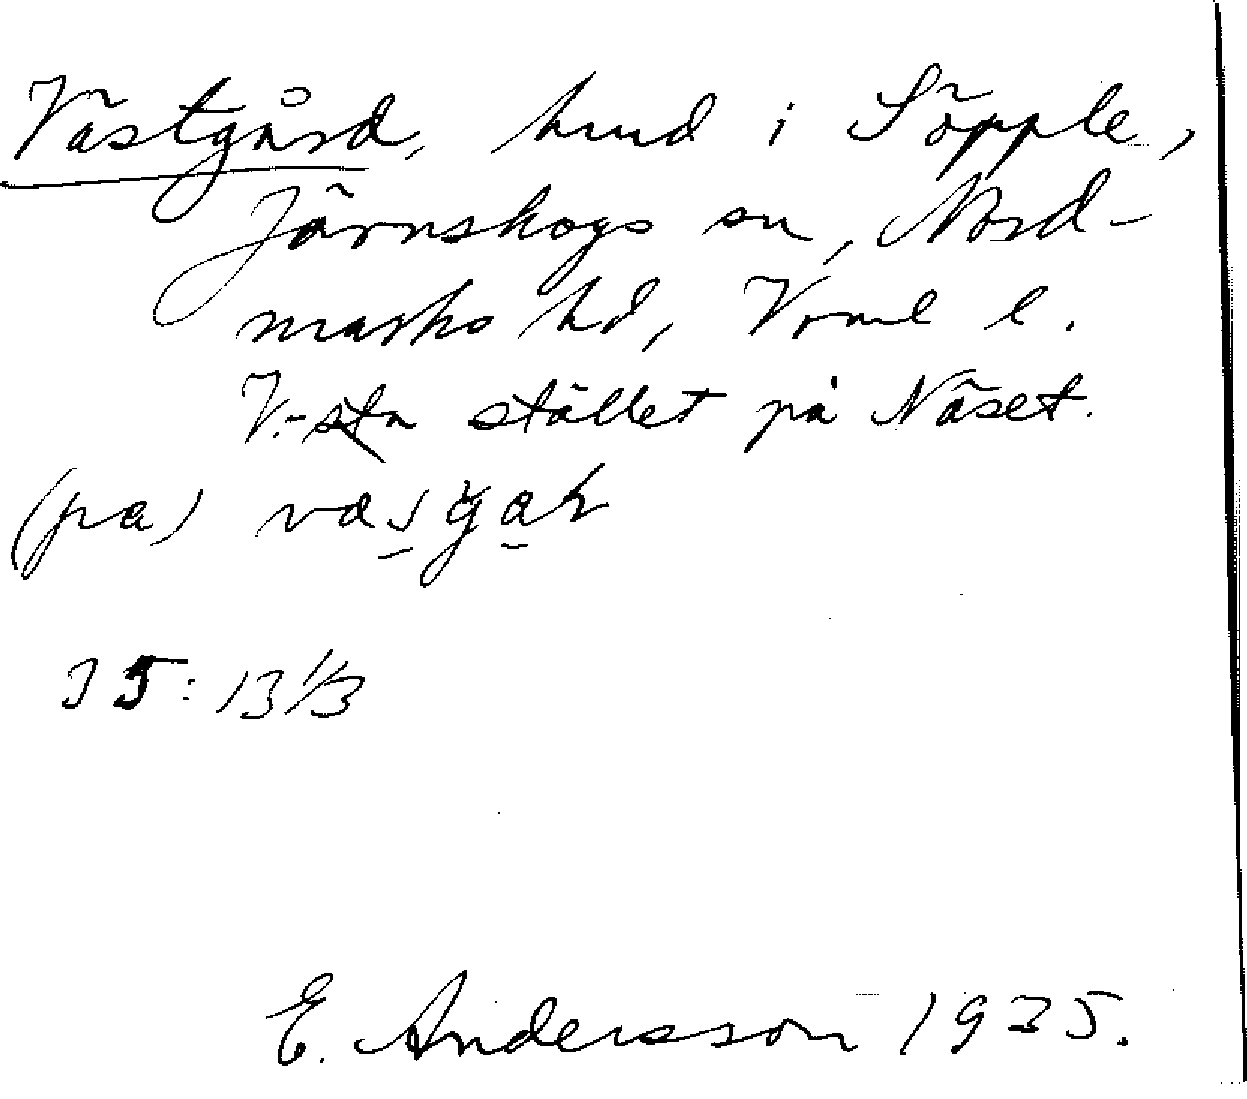 Västgård, hmd i Söpple,
Järnskogs sn, Nord-
marks hd, Vrml l.
V.-sta stället på Näset.
(pa) väsgaɽ
I 5: 13 1/3
E. Andersson 1935.